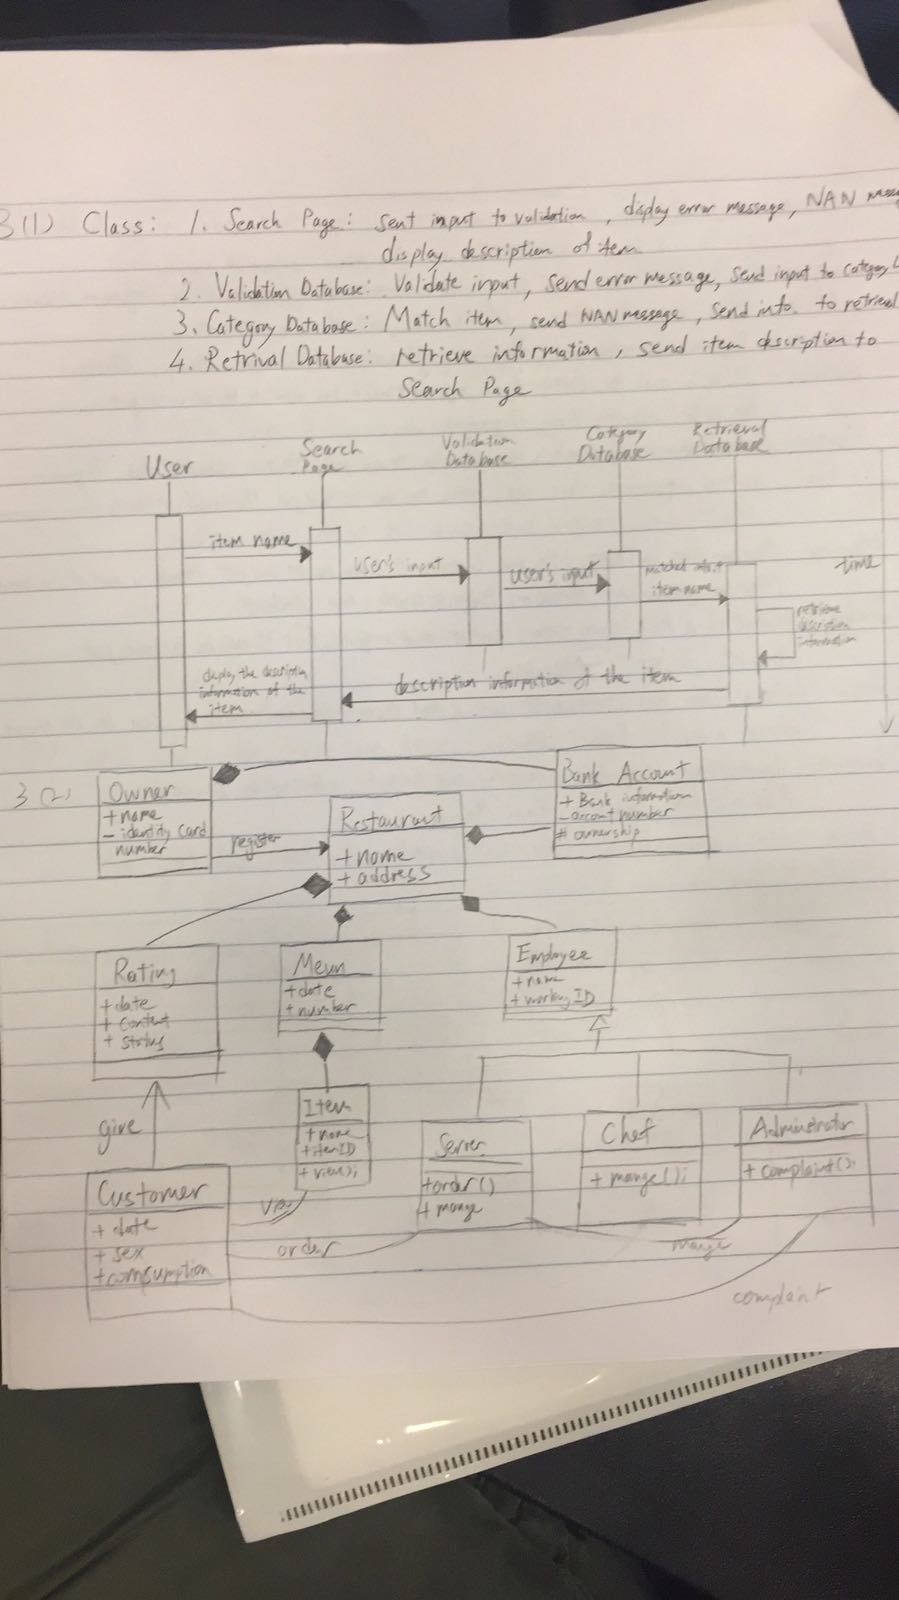 3(1) Class: 1. Search Page: sent input to validation, display error message, NAN
display description of item
2. Validation Database: Validate input, send error message, send input to
3. Category Database: Match item, send NAN message, send info. to retrieval
4. Retrival Database: retrieve information, send item description to
Search Page
User
Search
Page
Validation
Database
Category
Database
Retrieval
Database
item name
user's input
user's input
item name
time
retrieve
information
display the
information of the
item
description information of the item
3(2)
Owner
+ name
- identity card
number
register
Restaurant
+ name
+ address
Bank Account
+ Bank information
- account number
# ownership
Rating
+ date
+ content
+ status
Menu
+ date
+ number
Employee
+ name
+ working ID
give
Item
+ name
+ itemID
+ view();
Server
+ order()
+ mange
Chef
+ mange();
Administrator
+ complaint();
Customer
+ date
+ sex
+ comsumption
view
order
mange
complaint